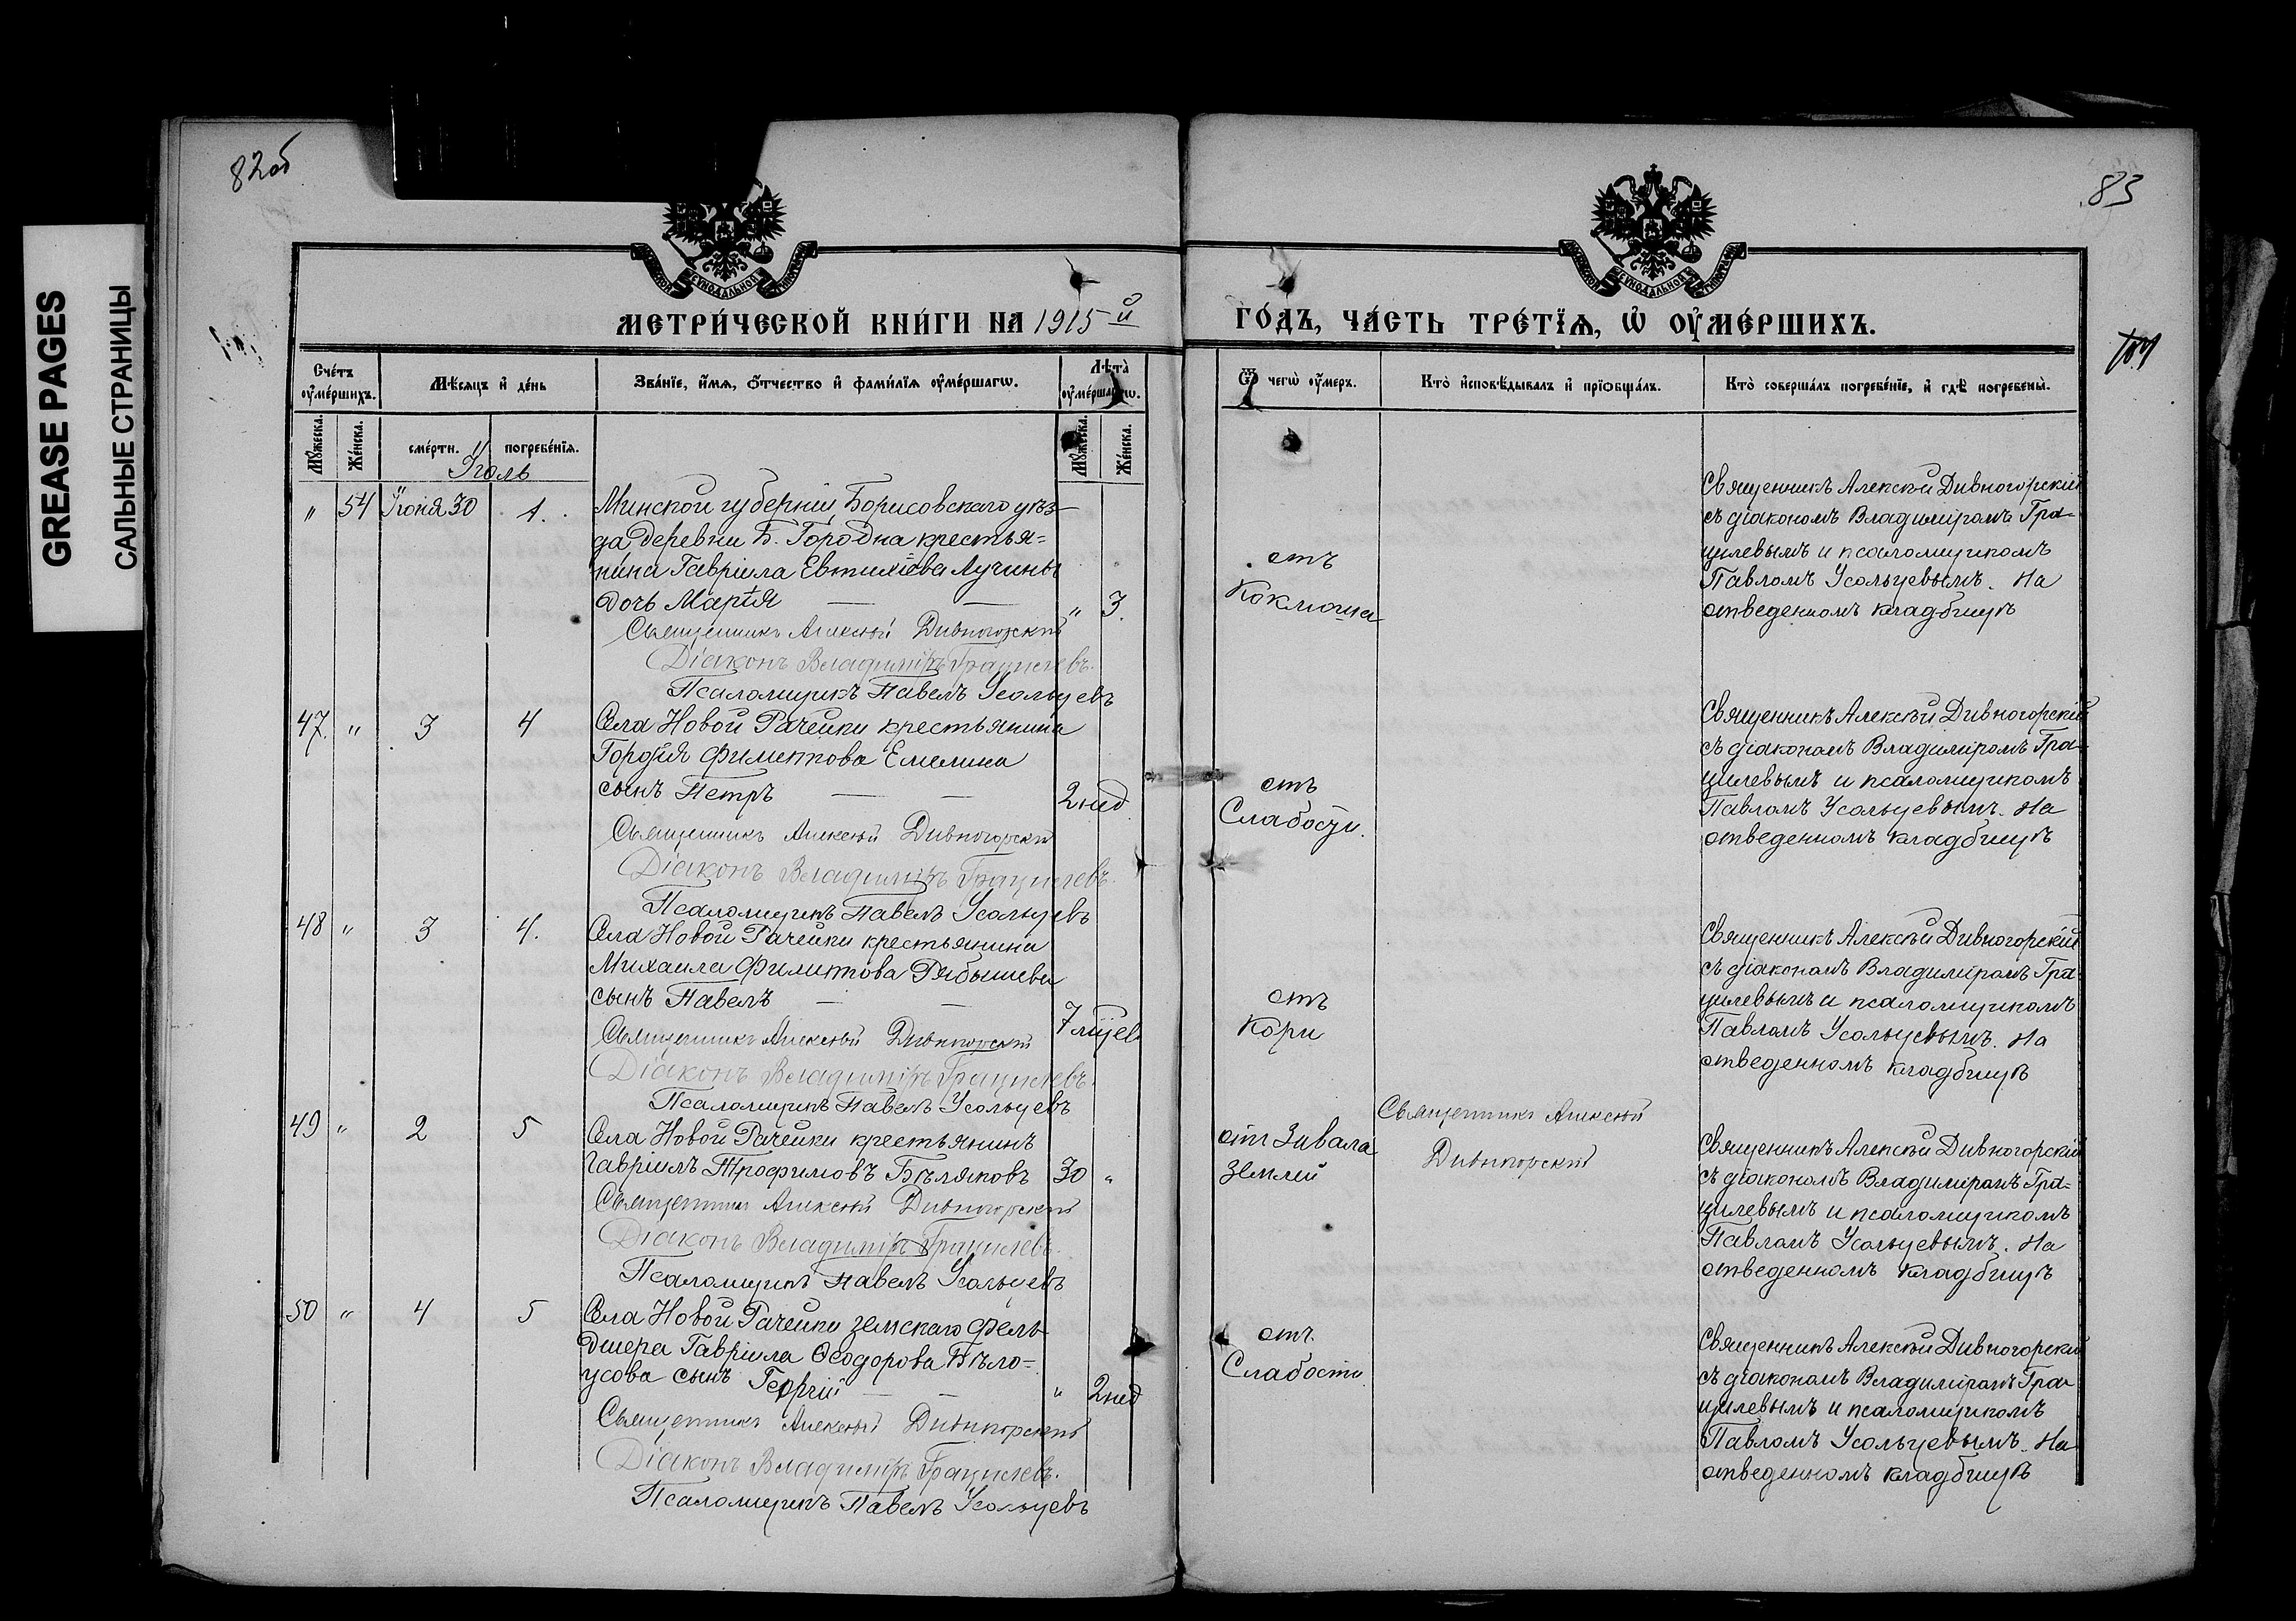 82об
83
GREASE PAGES
САЛЬНЫЕ СТРАНИЦЫ
МЕТРИ́ЧЕСКОЙ КНИ́ГИ НА 1915й
ГО́ДЪ, ЧА́СТЬ ТРЕ́ТЇѦ, Ѡ ОУ҆МЕ́РШИХЪ.
Сче́тъ оу҆ме́ршихъ.
Мѣ́сяцъ и҆ де́нь
Зва́нїе, и҆́мѧ, ѻ҆́тчество и҆ фами́лїѧ оу҆ме́ршагѡ.
Лѣ́та̀ оу҆ме́ршагѡ.
Ѿ чегѡ̀ оу҆́меръ.
Кто̀ и҆сповѣ́дывалъ и҆ прїѡбща́лъ.
Кто̀ соверша́лъ погребе́нїе, и҆ гдѣ̀ погребены̀.
Мꙋ́жеска.
Же́нска.
сме́рти.
погребе́нїѧ.
Мꙋ́жеска.
Же́нска.
Іюль
" 54 Іюня 30 1.
Минской губерніи, Борисовскаго уѣз-
да, деревни Б. Городна крестья=
нина Гавріила Евтихіева Лучины
дочь Марія — — " 3.
Священникъ Алексѣй Дивногорскій
Діаконъ Владиміръ Грацилевъ.
Псаломщикъ Павелъ Усольцевъ
отъ
Коклюша
Священникъ Алексѣй Дивногорскій
съ діакономъ Владиміромъ Гра=
цилевымъ и псаломщикомъ
Павломъ Усольцевымъ. На
отведенномъ кладбищѣ
47. " 3 4
Села Новой Рачейки крестьянина
Гордія Филиппова Емелина
сынъ Петръ — — 2 нед
Священникъ Алексѣй Дивногорскій
Діаконъ Владиміръ Грацилевъ.
Псаломщикъ Павелъ Усольцевъ
отъ
Слабости.
Священникъ Алексѣй Дивногорскій
съ діакономъ Владиміромъ Гра-
цилевымъ и псаломщикомъ
Павломъ Усольцевымъ. На
отведенномъ кладбищѣ
48 " 3 4.
Села Новой Рачейки крестьянина
Михаила Филиппова Рябышева
сынъ Павелъ — — 7 мѣс
Священникъ Алексѣй Дивногорскій
Діаконъ Владиміръ Грацилевъ.
Псаломщикъ Павелъ Усольцевъ
отъ
Кори
Священникъ Алексѣй Дивногорскій
съ діакономъ Владиміромъ Гра-
цилевымъ и псаломщикомъ
Павломъ Усольцевымъ. На
отведенномъ кладбищѣ
49 " 2 5
Села Новой Рачейки крестьянинъ
Гавріилъ Трофимовъ Бѣляковъ 30 "
Священникъ Алексѣй Дивногорскій
Діаконъ Владиміръ Грацилевъ.
Псаломщикъ Павелъ Усольцевъ
отъ Завала
землей
Священникъ Алексѣй
Дивногорскій
Священникъ Алексѣй Дивногорскій
съ діакономъ Владиміромъ Гра=
цилевымъ и псаломщикомъ
Павломъ Усольцевымъ. На
отведенномъ кладбищѣ
50 " 4 5
Села Новой Рачейки земскаго фель-
дшера Гавріила Ѳеодорова Бѣло=
усова сынъ Георгій — — " 2 нед
Священникъ Алексѣй Дивногорскій
Діаконъ Владиміръ Грацилевъ.
Псаломщикъ Павелъ Усольцевъ
отъ
Слабости
Священникъ Алексѣй Дивногорскій
съ діакономъ Владиміромъ Гра-
цилевымъ и псаломщикомъ
Павломъ Усольцевымъ. На
отведенномъ кладбищѣ